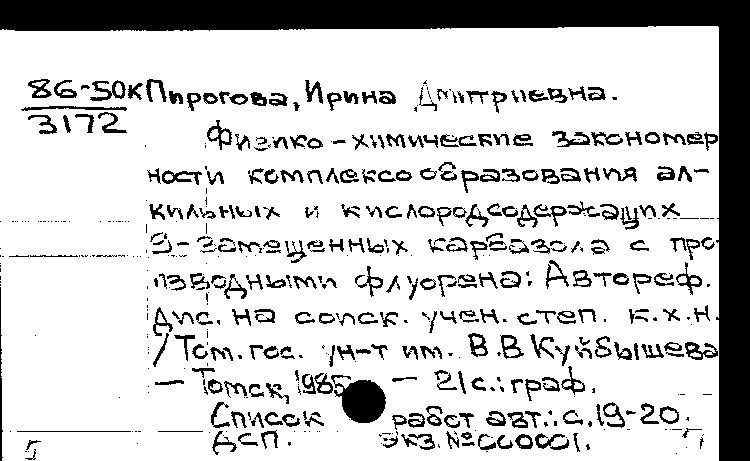 86-50К Пирогова, Ирина Дмитриевна.
3172
Физико-химические закономер
ности комплексообразования ал-
кильных и кислородсодержащих
9-замещенных карбазола с про
изводными флуорена: Автореф.
Дис. на соиск. учен. степ. к.х.н.
/Том. гос. ун-т им. В.В Куйбышева
— Томск, 1985 — 21с.: граф.
Список работ авт.: с. 19-20.
ДСП. Экз. №000001.